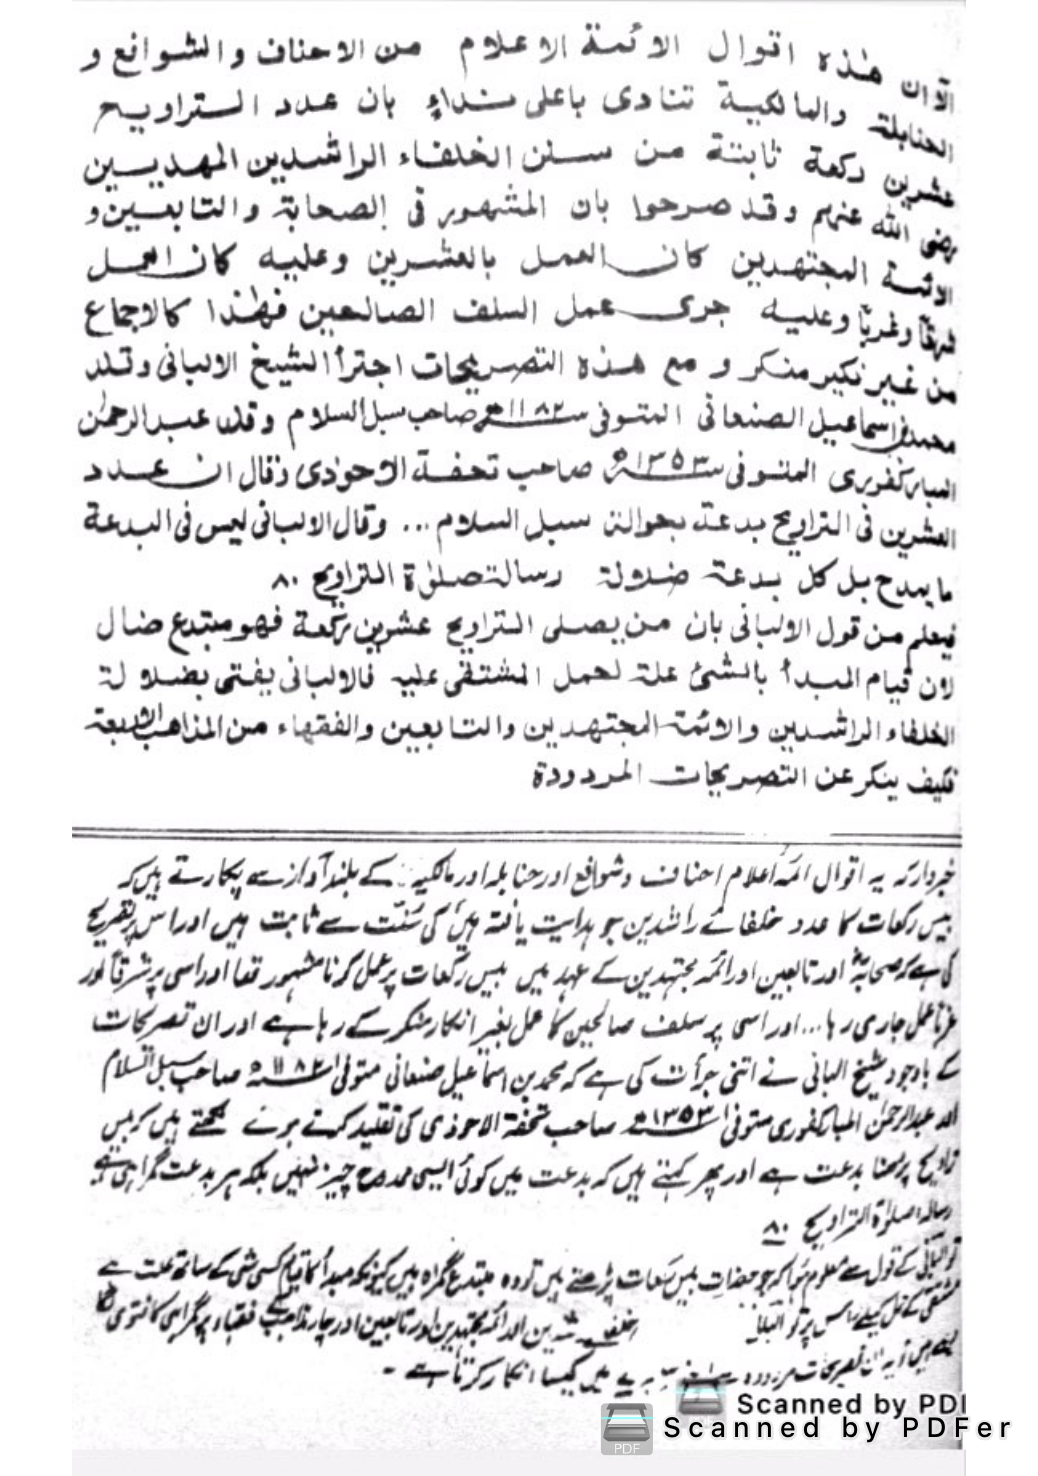 الآ ان هذه اقوال الائمة الاعلام من الاحناف والشوافع و
الحنابلة والمالكية تنادى باعلى نداءٍ بان عدد التراويح
عشرين ركعة ثابتة من سنن الخلفاء الراشدين المهديين
رضى الله عنهم وقد صرحوا بان المشهور فى الصحابة والتابعين و
الائمة المجتهدين كان العمل بالعشرين وعليه كان العمل
شرقاً وغرباً وعليه جرى عمل السلف الصالحين فهٰذا كالاجماع
من غير نكير منكر و مع هذه التصريحات اجترأ الشيخ الالبانى وقلد
محمد بن اسماعيل الصنعانى المتوفى ١١٨٢ھ صاحب سبل السلام وقلد عبد الرحمٰن
المباركفورى المتوفى ١٣٥٣ھ صاحب تحفة الاحوذى وقال ان عدد
العشرين فى التراويح بدعة بحوالة سبل السلام ... وقال الالبانى ليس فى البدعة
ما يمدح بل كل بدعة ضلالة رسالة صلوٰة التراويح ٨٠
فيعلم من قول الالبانى بان من يصلى التراويح عشرين ركعة فهو مبتدع ضال
لان قيام المبدأ بالشئ علة لحمل المشتق عليه فالالبانى يفتى بضلالة
الخلفاء الراشدين والائمة المجتهدين والتابعين والفقهاء من المذاهب الاربعة
فكيف ينكر عن التصريحات المردودة
خبردار کہ یہ اقوال ائمہ اعلام احناف وشوافع اور حنابلہ اور مالکیہ کے بلند آواز سے پکارتے ہیں کہ
بیس رکعات کا عدد خلفائے راشدین جو ہدایت یافتہ ہیں کی سنّت سے ثابت ہیں اور اس پر تصریح
کی ہے کہ صحابہؓ اور تابعین اور ائمہ مجتہدین کے عہد میں بیس رکعات پر عمل کرنا مشہور تھا اور اسی پر شرقاً اور
غرباً عمل جاری رہا... اور اسی پر سلف صالحین کا عمل بغیر انکار منکر کے رہا ہے اور ان تصریحات
کے باوجود شیخ البانی نے اتنی جرأت کی ہے کہ محمد بن اسماعیل صنعانی متوفیٰ ١١٨٢ھ صاحب سبل السلام
اور عبدالرحمٰن المبارکفوری متوفیٰ ١٣٥٣ھ صاحب تحفۃ الاحوذی کی تقلید کرتے ہوئے لکھتے ہیں کہ بیس
تراویح پڑھنا بدعت ہے اور پھر کہتے ہیں کہ بدعت میں کوئی ایسی ممدوح چیز نہیں بلکہ ہر بدعت گمراہی ہے
رسالہ صلوٰۃ التراویح ٨٠
تو البانی کے قول سے معلوم ہوا کہ جو حضرات بیس رکعات پڑھتے ہیں تو وہ مبتدع گمراہ ہیں کیونکہ مبدأ کا قیام کسی شی کے ساتھ علت ہے
مشتق کے حمل کیلئے اس پر تو البانی راشدین اور ائمہ مجتہدین اور تابعین اور چار مذاہب کے فقہاء پر گمراہی کا فتویٰ
تصریحات مردودہ سے میں کیسا انکار کرتا ہے -
Scanned by PDF
Scanned by PDFer
PDF